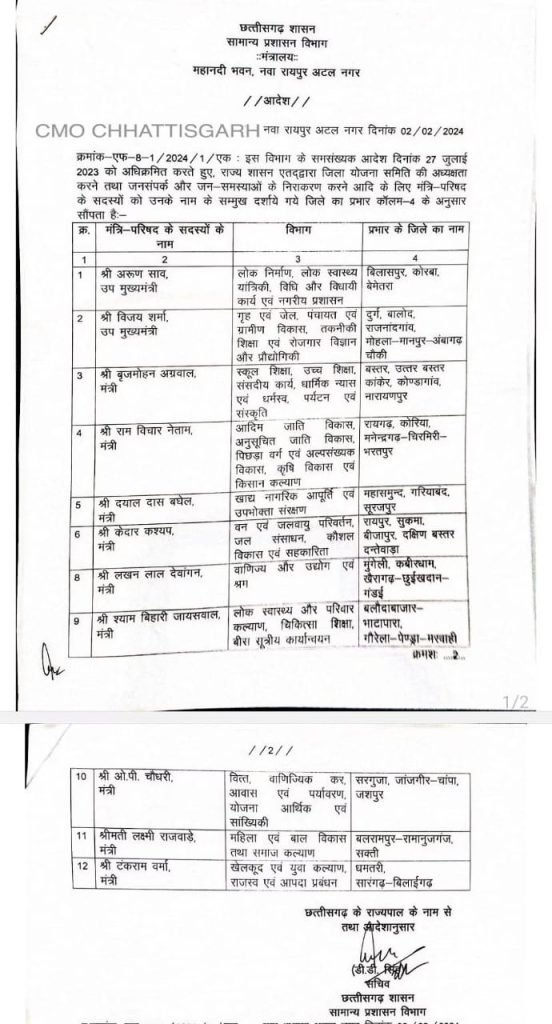 छत्तीसगढ़ शासन
सामान्य प्रशासन विभाग
::मंत्रालय::
महानदी भवन, नवा रायपुर अटल नगर
//आदेश//
CMO CHHATTISGARH नवा रायपुर अटल नगर दिनांक 02/02/2024
क्रमांक-एफ-8-1/2024/1/एक : इस विभाग के समसंख्यक आदेश दिनांक 27 जुलाई
2023 को अधिक्रमित करते हुए, राज्य शासन एतद्द्वारा जिला योजना समिति की अध्यक्षता
करने तथा जनसंपर्क और जन-समस्याओं के निराकरण करने आदि के लिए मंत्रि-परिषद
के सदस्यों को उनके नाम के सम्मुख दर्शाये गये जिले का प्रभार कॉलम-4 के अनुसार
सौंपता है:-
क्र. मंत्रि-परिषद के सदस्यों के विभाग प्रभार के जिले का नाम
नाम
1 2 3 4
1 श्री अरूण साव, लोक निर्माण, लोक स्वास्थ्य बिलासपुर, कोरबा,
उप मुख्यमंत्री यांत्रिकी, विधि और विधायी बेमेतरा
कार्य एवं नगरीय प्रशासन
2 श्री विजय शर्मा, गृह एवं जेल, पंचायत एवं दुर्ग, बालोद,
उप मुख्यमंत्री ग्रामीण विकास, तकनीकी राजनांदगांव,
शिक्षा एवं रोजगार विज्ञान मोहला-मानपुर-अंबागढ़
और प्रौद्योगिकी चौकी
3 श्री बृजमोहन अग्रवाल, स्कूल शिक्षा, उच्च शिक्षा, बस्तर, उत्तर बस्तर
मंत्री संसदीय कार्य, धार्मिक न्यास कांकेर, कोण्डागांव,
एवं धर्मस्व, पर्यटन एवं नारायणपुर
संस्कृति
4 श्री राम विचार नेताम, आदिम जाति विकास, रायगढ़, कोरिया,
मंत्री अनुसूचित जाति विकास, मनेन्द्रगढ़-चिरमिरी-
पिछड़ा वर्ग एवं अल्पसंख्यक भरतपुर
विकास, कृषि विकास एवं
किसान कल्याण
5 श्री दयाल दास बघेल, खाद्य नागरिक आपूर्ति एवं महासमुन्द, गरियाबंद,
मंत्री उपभोक्ता संरक्षण सूरजपुर
6 श्री केदार कश्यप, वन एवं जलवायु परिवर्तन, रायपुर, सुकमा,
मंत्री जल संसाधन, कौशल बीजापुर, दक्षिण बस्तर
विकास एवं सहकारिता दन्तेवाड़ा
8 श्री लखन लाल देवांगन, वाणिज्य और उद्योग एवं मुंगेली, कबीरधाम,
मंत्री श्रम खैरागढ़-छुईखदान-
गंडई
9 श्री श्याम बिहारी जायसवाल, लोक स्वास्थ्य और परिवार बलौदाबाजार-
मंत्री कल्याण, चिकित्सा शिक्षा, भाटापारा,
बीस सूत्रीय कार्यान्वयन गौरेला-पेण्ड्रा-मरवाही
क्रमशः ...2...
1/2
//2//
10 श्री ओ.पी. चौधरी, वित्त, वाणिज्यिक कर, सरगुजा, जांजगीर-चांपा,
मंत्री आवास एवं पर्यावरण, जशपुर
योजना आर्थिक एवं
सांख्यिकी
11 श्रीमती लक्ष्मी राजवाड़े, महिला एवं बाल विकास बलरामपुर-रामानुजगंज,
मंत्री तथा समाज कल्याण सक्ती
12 श्री टंकराम वर्मा, खेलकूद एवं युवा कल्याण, धमतरी,
मंत्री राजस्व एवं आपदा प्रबंधन सारंगढ़-बिलाईगढ़
छत्तीसगढ़ के राज्यपाल के नाम से
तथा आदेशानुसार
(डी.डी. सिंह)
सचिव
छत्तीसगढ़ शासन
सामान्य प्रशासन विभाग